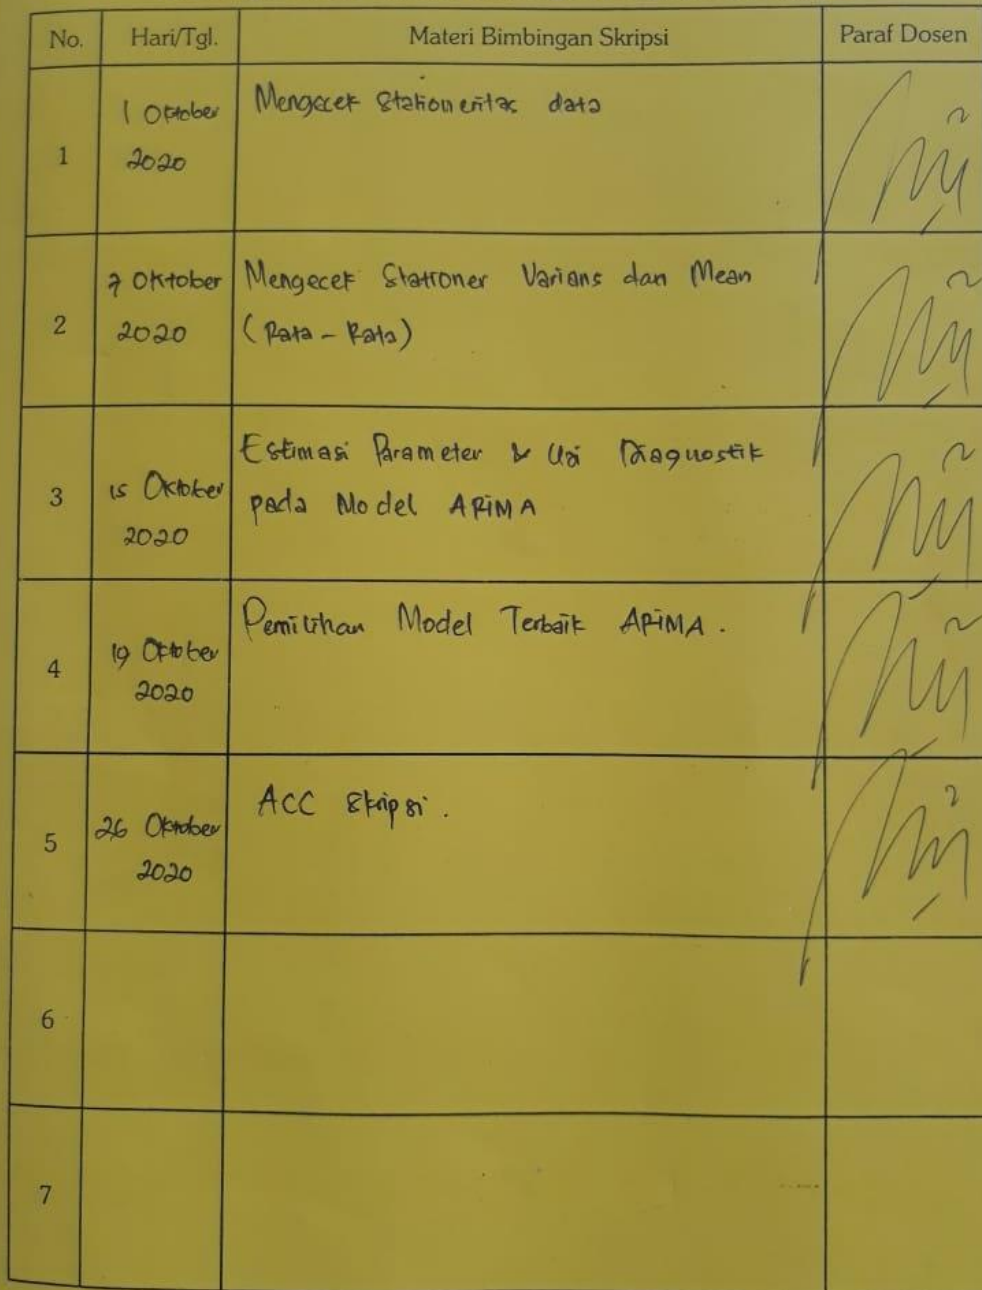 No. Hari/Tgl. Materi Bimbingan Skripsi Paraf Dosen
1
1 Oktober
2020
Mengecek Stationeritas data
2
7 Oktober
2020
Mengecek Stationer Varians dan Mean
(Rata - Rata)
3
15 Oktober
2020
Estimasi Parameter & Uji Diagnostik
pada Model ARIMA
4
19 Oktober
2020
Pemilihan Model Terbaik ARIMA.
5
26 Oktober
2020
ACC Skripsi.
6
7